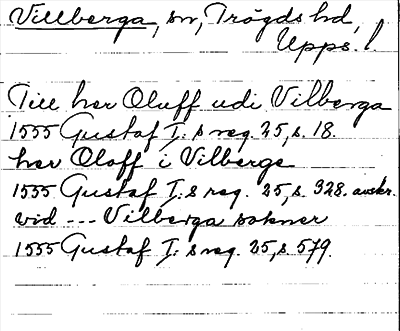 Villberga, sn, Trögds hd,
Upps. l
Till her Oluff udi Vilberga
1555 Gustaf I: s reg. 25, s. 18.
her Oloff i Vilberge
1555 Gustaf I: s reg. 25, s. 328. avskr.
vid --- Vilberga sokner
1555 Gustaf I: s reg. 25, s. 579.